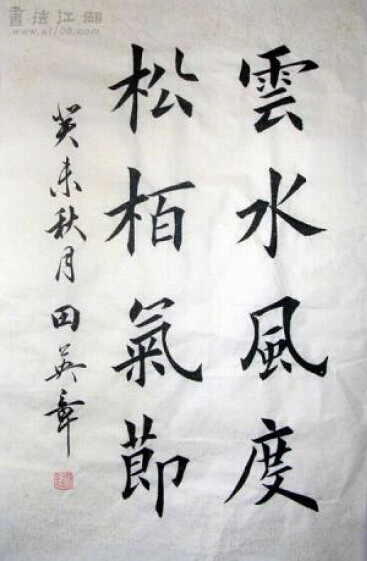 雲水風度
松栢氣節
癸未秋月田英章
書法江湖
www.sf108.com